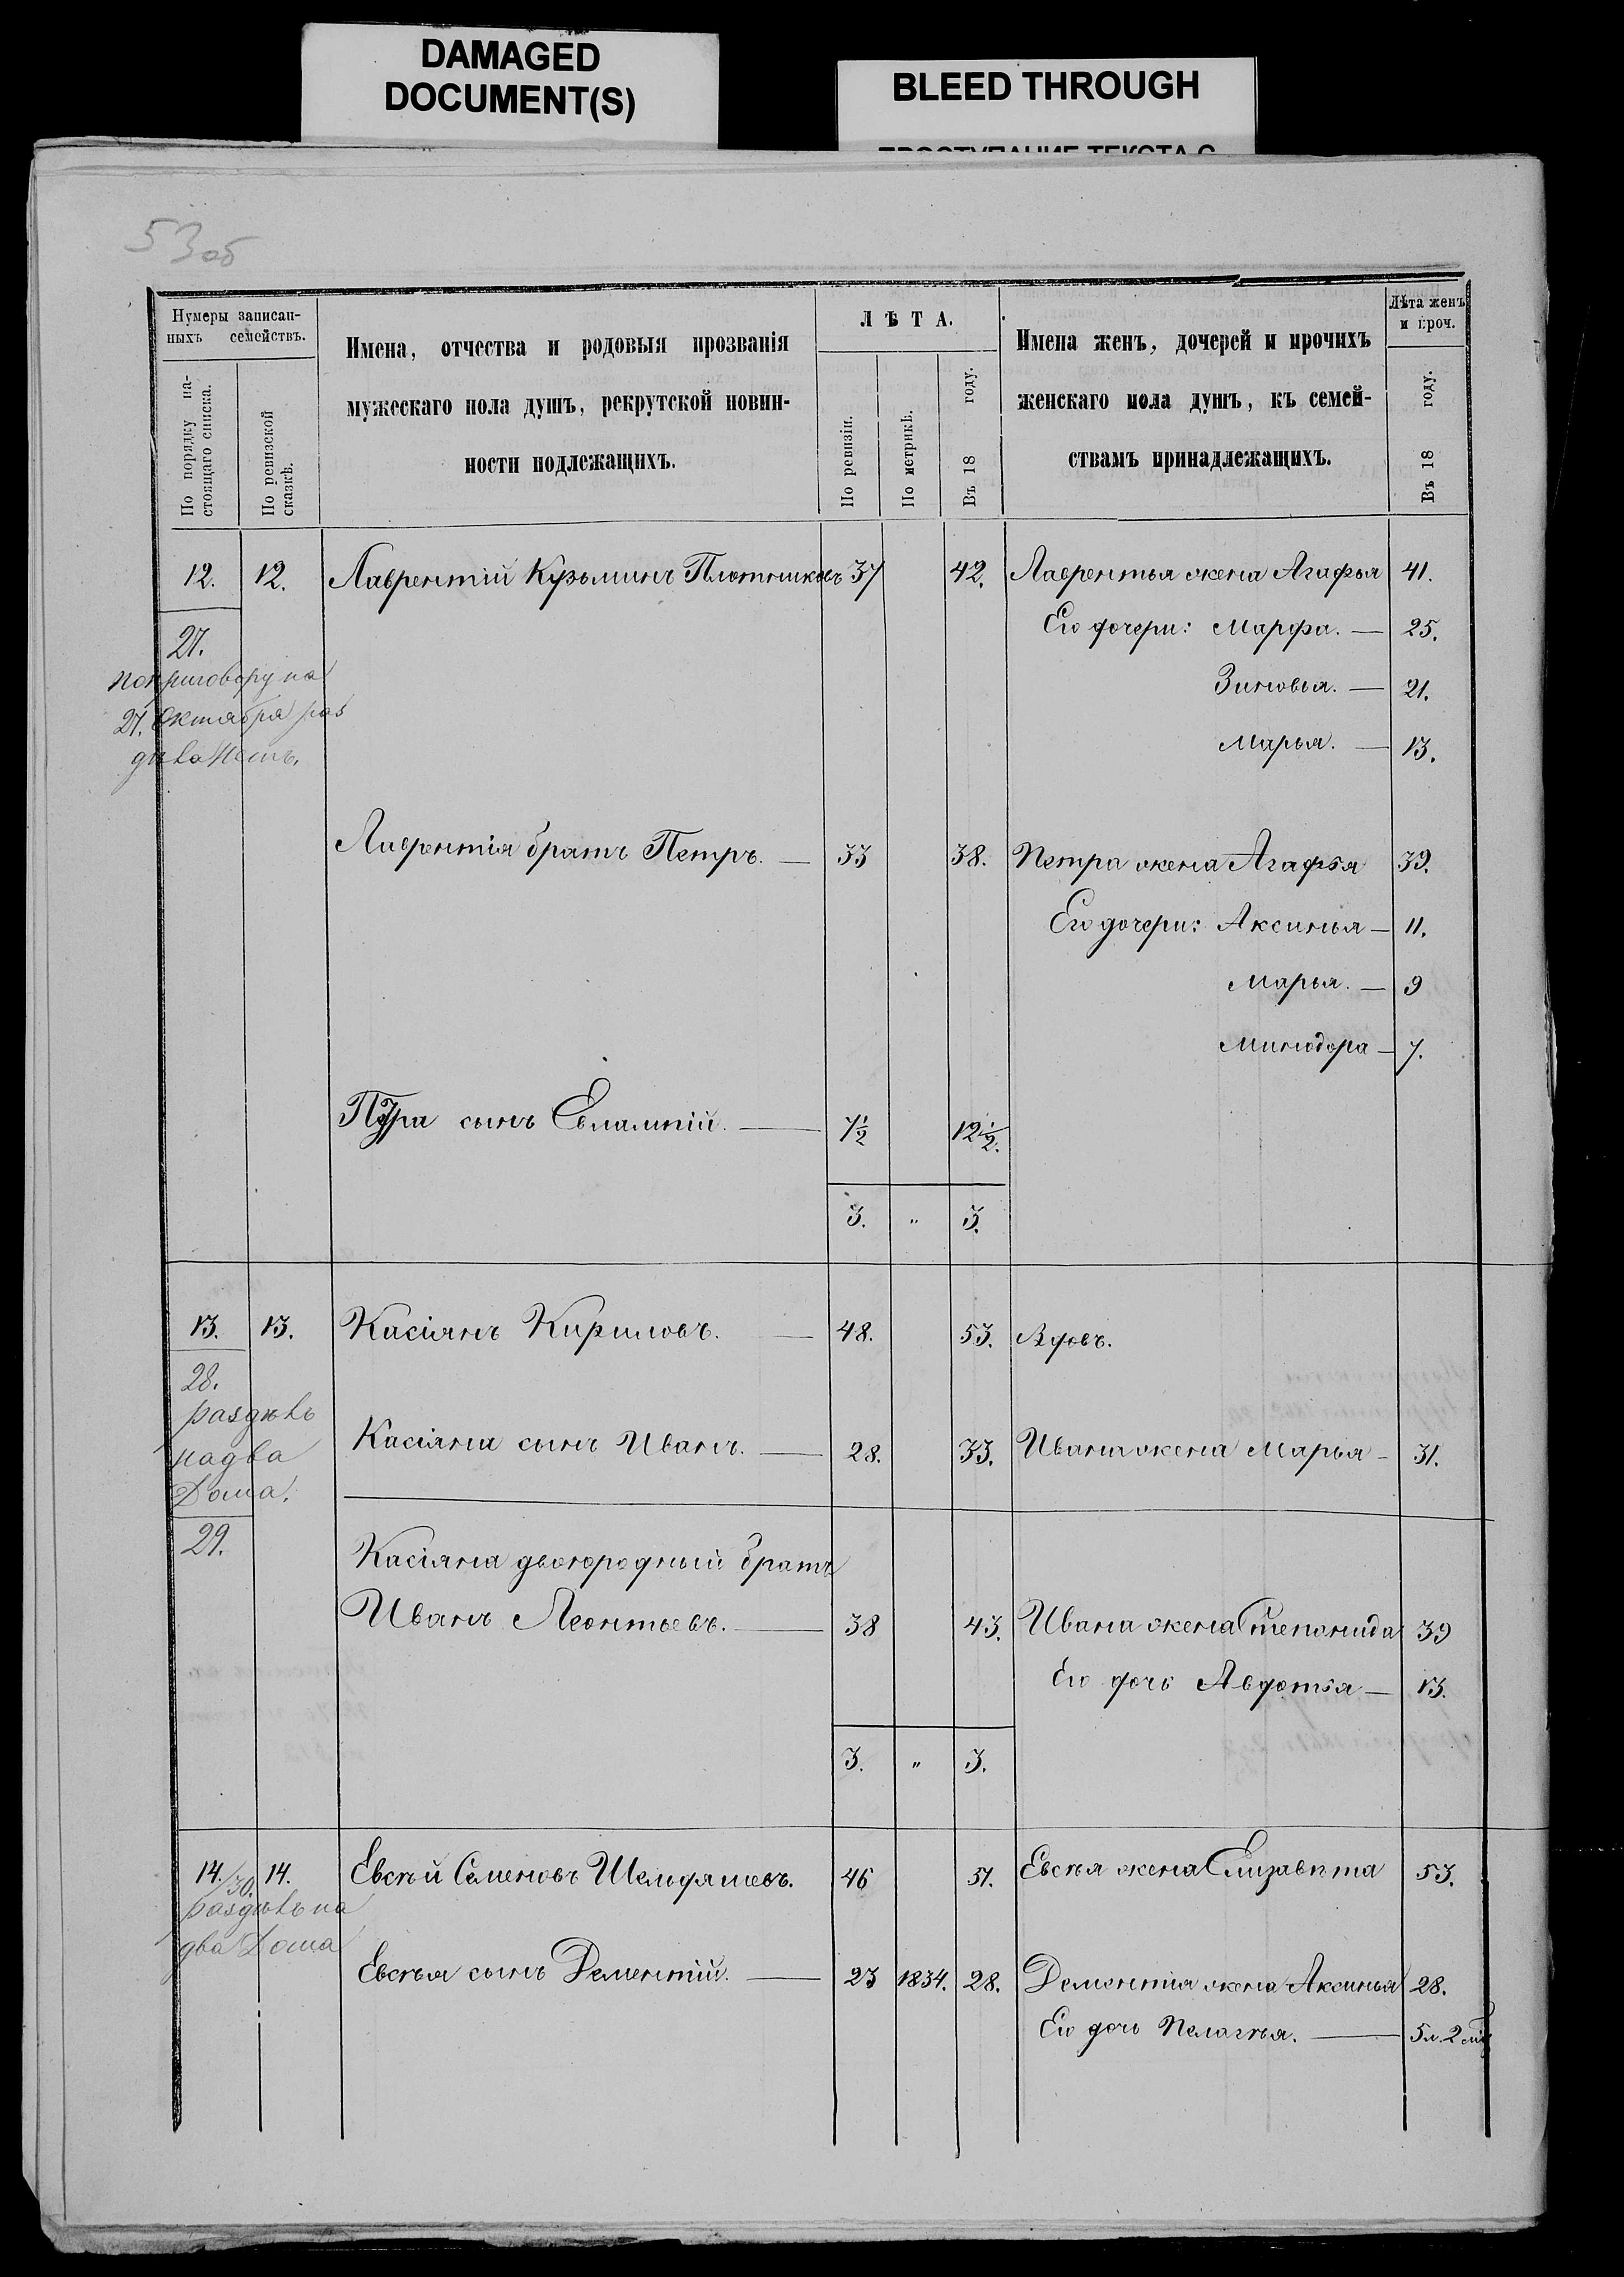 DAMAGED
DOCUMENT(S)
BLEED THROUGH
53 об
Нумеры записан-
ныхъ семействъ.
По порядку на-
стоящаго списка.
По ревизской
сказкѣ.
Имена, отчества и родовыя прозванія
мужескаго пола душъ, рекрутской повин-
ности подлежащихъ.
ЛѢТА.
По ревизіи.
По метрикѣ.
Въ 18 году.
Имена женъ, дочерей и прочихъ
женскаго пола душъ, къ семей-
ствамъ принадлежащихъ.
Лѣта женъ
и проч.
Въ 18 году.
12. 12. Лаврентій Кузьминъ Плотниковъ 37 42. Лаврентья жена Агафья 41.
27. Его дочери: Марфа. — 25.
по приговору на
Зиновья. — 21.
27. Октября раз
Марья. — 13.
Лаврентія братъ Петръ. — 33 38. Петра жена Агафья 39.
Его дочери: Аксинья — 11.
Марья. — 9
Минодора — 7.
Петра сынъ Евлампій. — 7½ 12½.
3. " 3.
13. 13. Касіянъ Кириловъ. — 48. 53. Вдовъ.
28.
раздѣлъ
на два
Дома.
Касіяна сынъ Иванъ. — 28. 33. Ивана жена Марья — 31.
29.
Касіяна двоюродный братъ
Иванъ Леонтьевъ. — 38 43. Ивана жена Степонида 39
Его дочь Авдотья — 13.
3. " 3.
14./30. 14. Евсѣй Семеновъ Шельдяшевъ. 46 51. Евсѣя жена Елизавѣта 53.
раздѣлъ на
два Дома
Евсѣя сынъ Дементій. — 23 1834. 28. Дементія жена Аксинья 28.
Его дочь Пелагѣя. — 5 л. 2 мѣ